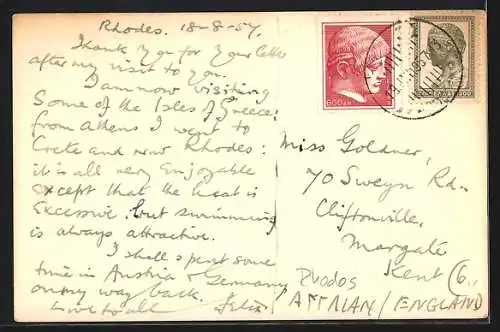 Rhodes. 18-8-54.
Thank you for your letter
after my visit to you.
I am now visiting
some of the Isles of Greece:
from Athens I went to
Crete and now Rhodes:
it is all very enjoyable
except that the heat is
excessive. but swimming
is always attractive.
I shall spent some
time in Austria & Germany
on my way back.
Love to all
600
Miss Goldner,
70 Sweyn Rd.
Cliftonville,
Margate
Kent
Rhodos
ENGLAND